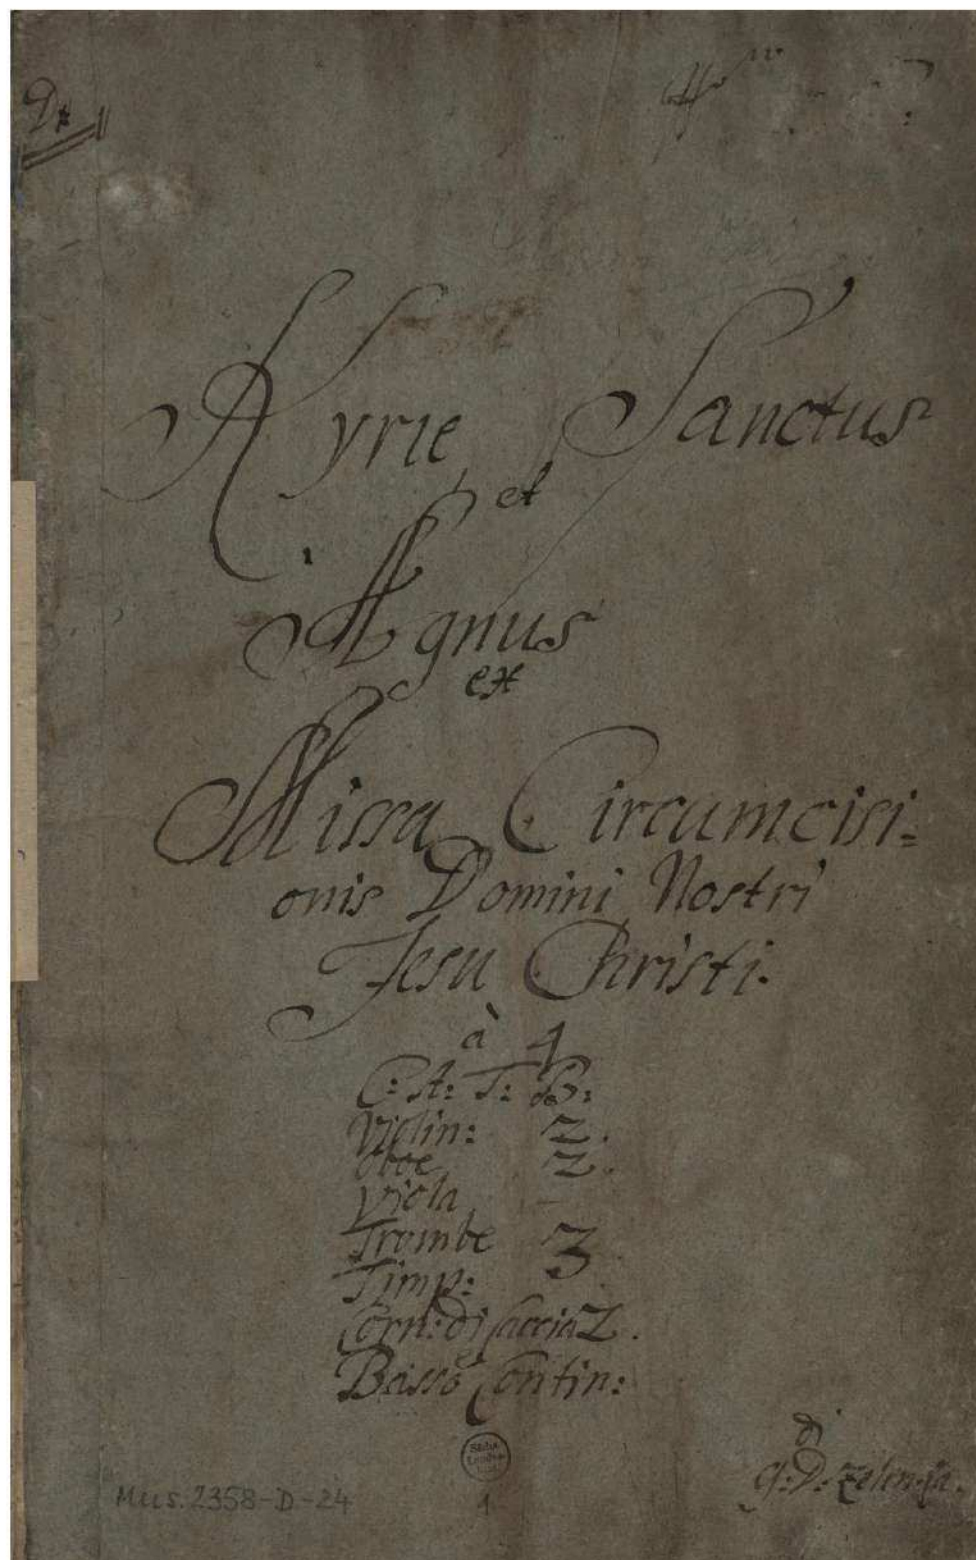 Kyrie Sanctus
et
Agnus
ex
Missa Circumcisi=
onis Domini Nostri
Jesu Christi.
à 4
C: A: T: B:
Violin: 2.
Oboe 2.
Viola
Trombe 3
Timp:
Corn: di Caccia 2.
Basso Contin:
di
G: D: Zelenka.
Mus. 2358-D-24
1